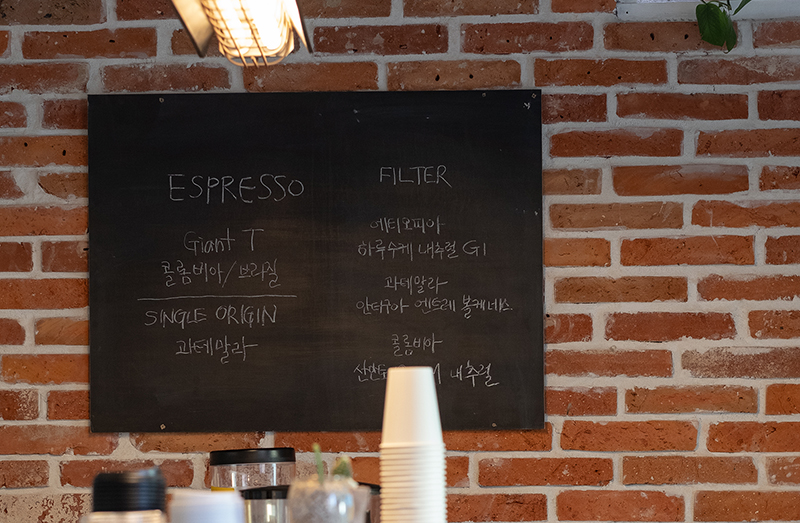 ESPRESSO
Giant T
콜롬비아/브라질
SINGLE ORIGIN
과테말라
FILTER
에티오피아
하루수케 내추럴 G1
과테말라
안티구아 엔트레 볼케네스.
콜롬비아
내추럴